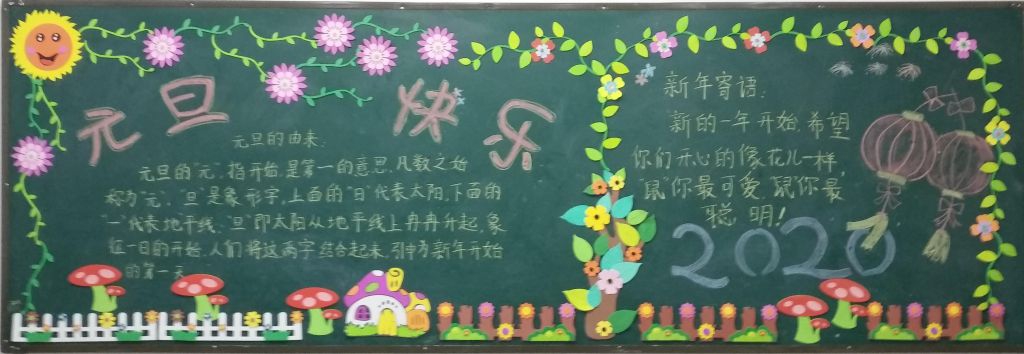 元旦快乐
元旦的由来:
元旦的“元”,指开始,是第一的意思,凡数之始
称为“元”,“旦”是象形字,上面的“日”代表太阳,下面的
“一”代表地平线,“旦”即太阳从地平线上冉冉升起,象
征一日的开始,人们将这两字结合起来,引申为新年开始
的第一天
新年寄语:
新的一年开始,希望
你们开心的像花儿一样,
“鼠”你最可爱,“鼠”你最
聪明!
2020